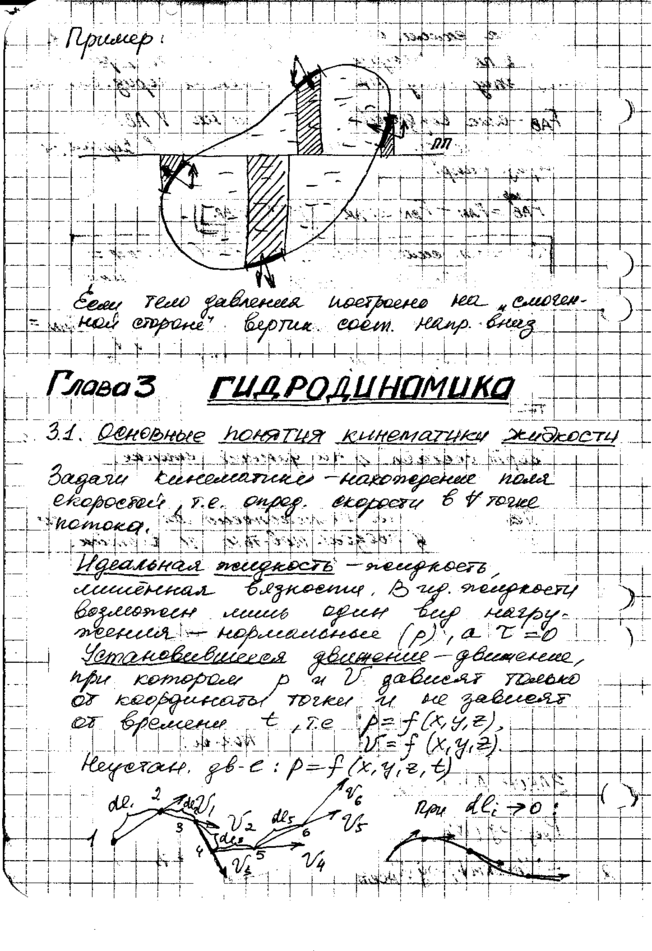 Пример:
пп
Если тело давления построено на „смочен-
ной стороне" вертик. сост. напр. вниз
Глава 3 ГИДРОДИНАМИКА
3.1. Основные понятия кинематики жидкости
Задачи кинематики – нахождение поля
скоростей, т.е. опред. скорости в ∀ точке
потока.
Идеальная жидкость – жидкость,
лишённая вязкости. В ид. жидкости
возможен лишь один вид нагру-
жения – нормальные (p), а τ = 0
Установившееся движение – движение,
при котором p и V зависят только
от координаты точки и не зависят
от времени t, т.е. p = f(x,y,z),
V = f(x,y,z)
Неустан. дв-е: p = f(x,y,z,t)
1 dl₁ 2 V₁ 3 V₂ 4 V₃ 5 V₄ dl₅ 6 V₅ V₆
При dlᵢ → 0 :